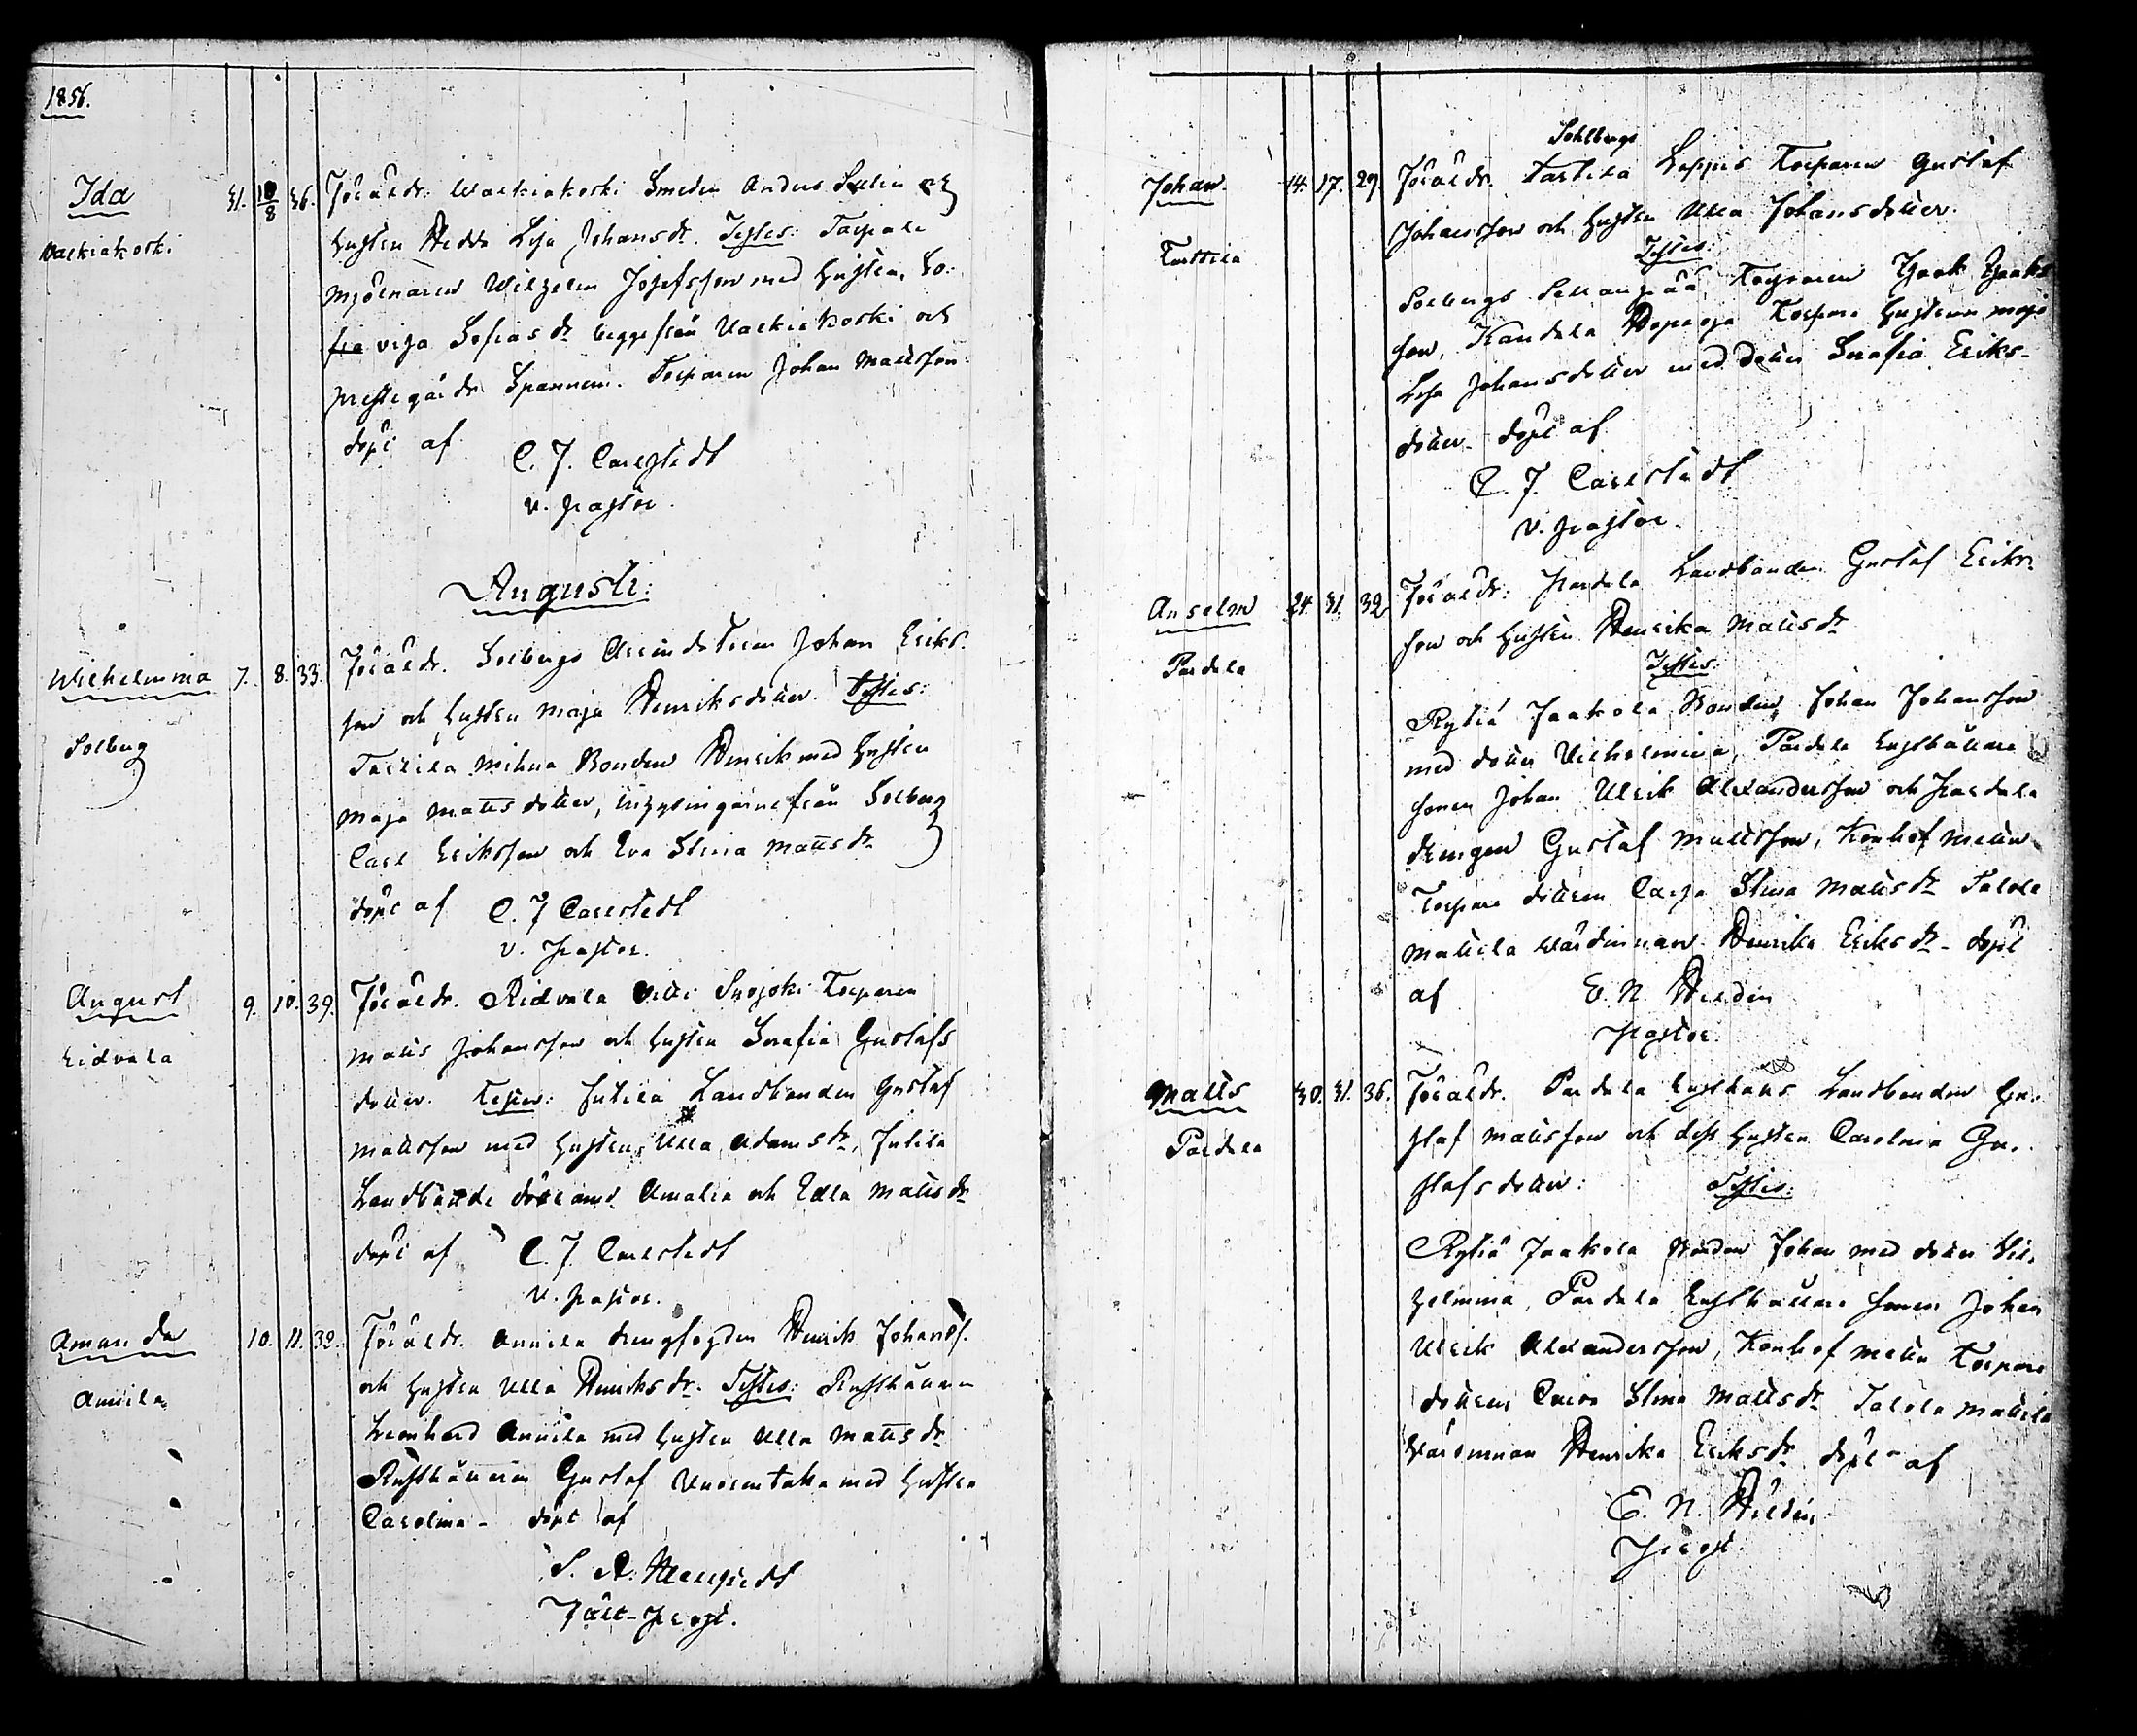 1856.
Ida
Valkiakoski
31. 10/8 36.
Föräldr. Walkiakoski Smeden Anders Selin och
hustru Hedda Lisa Johansdr. Testes: Tarpila
mjölnaren Wilhelm Josefsson med hustru, So-
fia vija Sofiasdr begge från Valkiakoski och
prestegårds Spannem. Torparen Johan Mattsson
döpt af
C. J. Carlstedt
v. pastor.
Augusti:
Wilhelmina
Solberg
7. 8. 33.
Föräldr. Solbergs Arrendatorn Johan Eriks-
son och hustru Maja Henriksdotter. Testes:
Tarttila Mihna Bonden Henrik med hustru
Maja Mattsdotter, ynglingarne från Solberg
Carl Eriksson och Eva Stina Mattsdr
döpt af
C. J Carlstedt
v. Pastor.
August
Ridvala
9. 10. 39.
Föräldr. Ridvala Torparen
Matts Johansson och hustru Serafia Gustafs
dotter. Testes: Jutila Landbonden Gustaf
Mattsson med hustru Ulla Adamsdr, Jutila
Landbonde döttrarne Amalia och Edla Mattsdr
döpt af
C. J. Carlstedt
v. pastor.
Amanda
Annila
10. 11. 32.
Föräldr. Annila drengfogden Henrik Johanss.
och hustru Ulla Henriksdr. Testes: Rusthållaren
Leonhard Annila med hustru Ulla Mattsdr
Rusthållaren Gustaf Vuorentaka med hustru
Carolina - döpt af
Fält-Prost.
Johan.
Tarttila
14. 17. 29.
Sohlbergs
Föräldr. Tarttila Torparen Gustaf
Johansson och hustru Ulla Johansdotter.
Testes:
Solbergs Torparen Isaak Isaks
son, Kardela Torpare hustrun Maja
Lisa Johansdotter med dotter Serafia Eriks-
dotter - döpt af
C. J. Carlstedt
v. pastor.
Anselm
Pardela
24. 31. 32
Föräldr: Pardela Landbonden Gustaf Eriks-
son och hustru Henrika Mattsdr
Testes:
Rytiä Jaakola Bonden Johan Johansson
med dotter Vilhelmina, Pardela Rusthållare
sonen Johan Ulrik Alexandersson och Pardela
drengen Gustaf Mattsson, Konhof
Torpare dottren Carja Stina Mattsdr Talola
Mattila värdinnan Henrika Eriksdr - döpt
af
E. N. Heldin
Pastor.
Matts
Pardela
30. 31. 36.
Föräldr. Pardela Rusthåls Landbonden Gu-
staf Mattsson och dess hustru Carolina Gu-
stafsdotter:
Testes:
Rytiä Jaakola Bonden Johan med dotter Vil-
helmina, Pardela Rusthållare sonen Johan
Ulrik Alexandersson, Konhof Torpare
dottren Stina Mattsdr Talola Mattila
Värdinnan Henrika Eriksdr döpt af
E. N. Heldin
Prost.